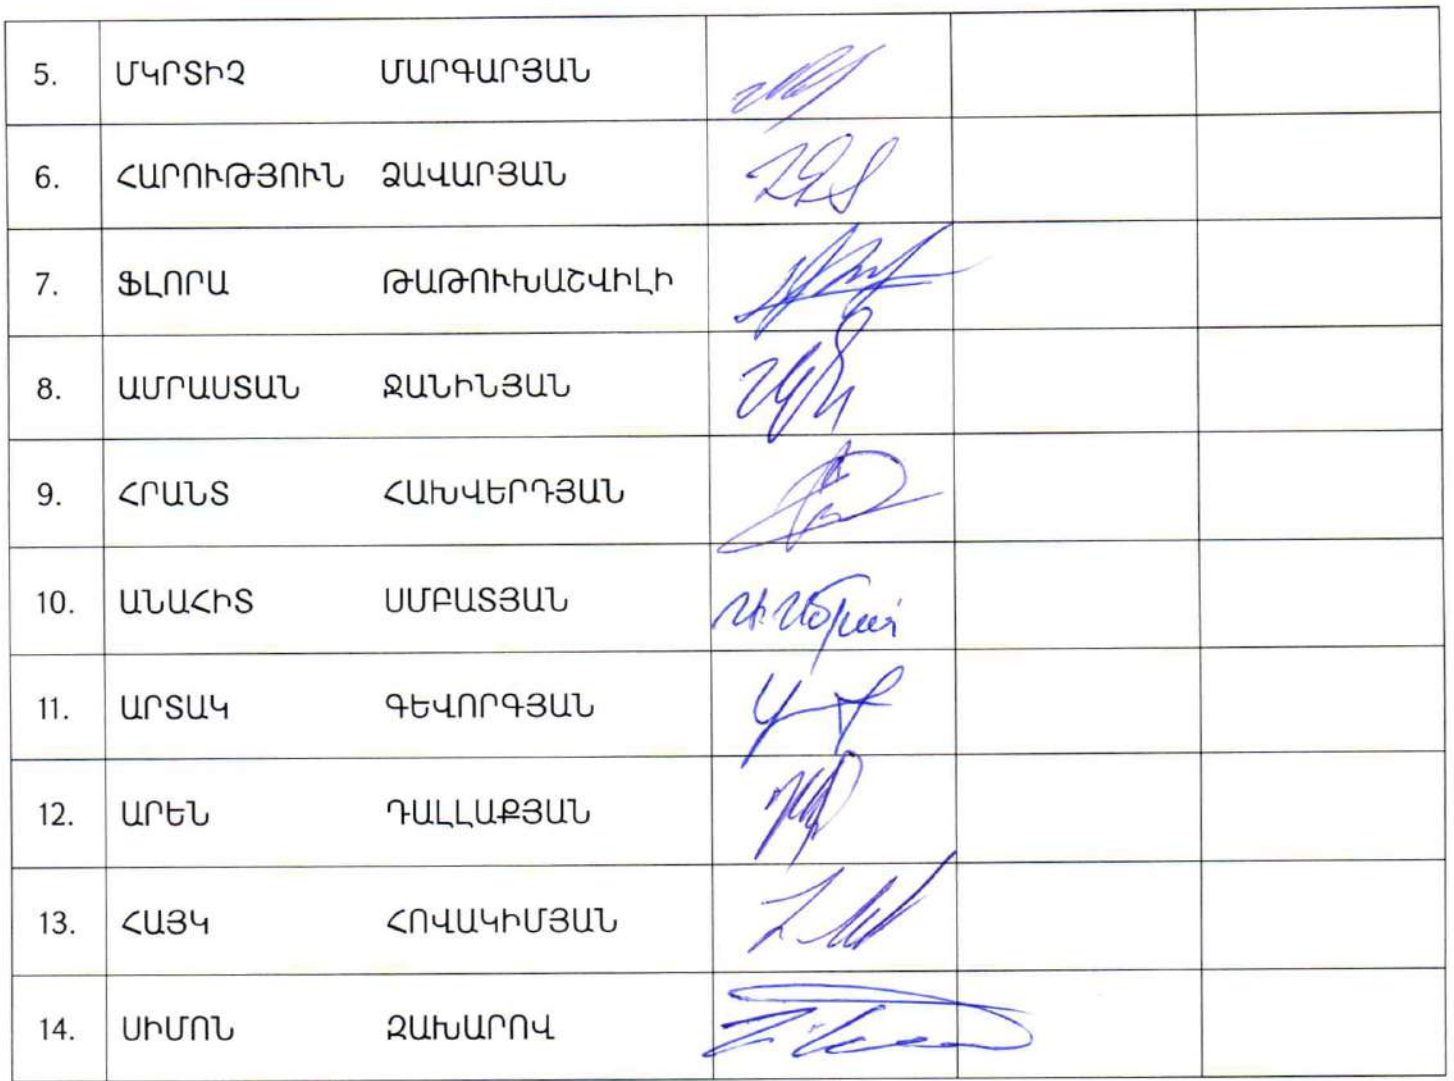 5. ՄԿՐՏԻՉ ՄԱՐԳԱՐՅԱՆ
6. ՀԱՐՈՒԹՅՈՒՆ ՁԱՎԱՐՅԱՆ
7. ՖԼՈՐԱ ԹԱԹՈՒԽԱՇՎԻԼԻ
8. ԱՄՐԱՍՏԱՆ ՋԱՆԻՆՅԱՆ
9. ՀՐԱՆՏ ՀԱԽՎԵՐԴՅԱՆ
10. ԱՆԱՀԻՏ ՍՄԲԱՏՅԱՆ
11. ԱՐՏԱԿ ԳԵՎՈՐԳՅԱՆ
12. ԱՐԵՆ ԴԱԼԼԱՔՅԱՆ
13. ՀԱՅԿ ՀՈՎԱԿԻՄՅԱՆ
14. ՍԻՄՈՆ ԶԱԽԱՐՈՎ